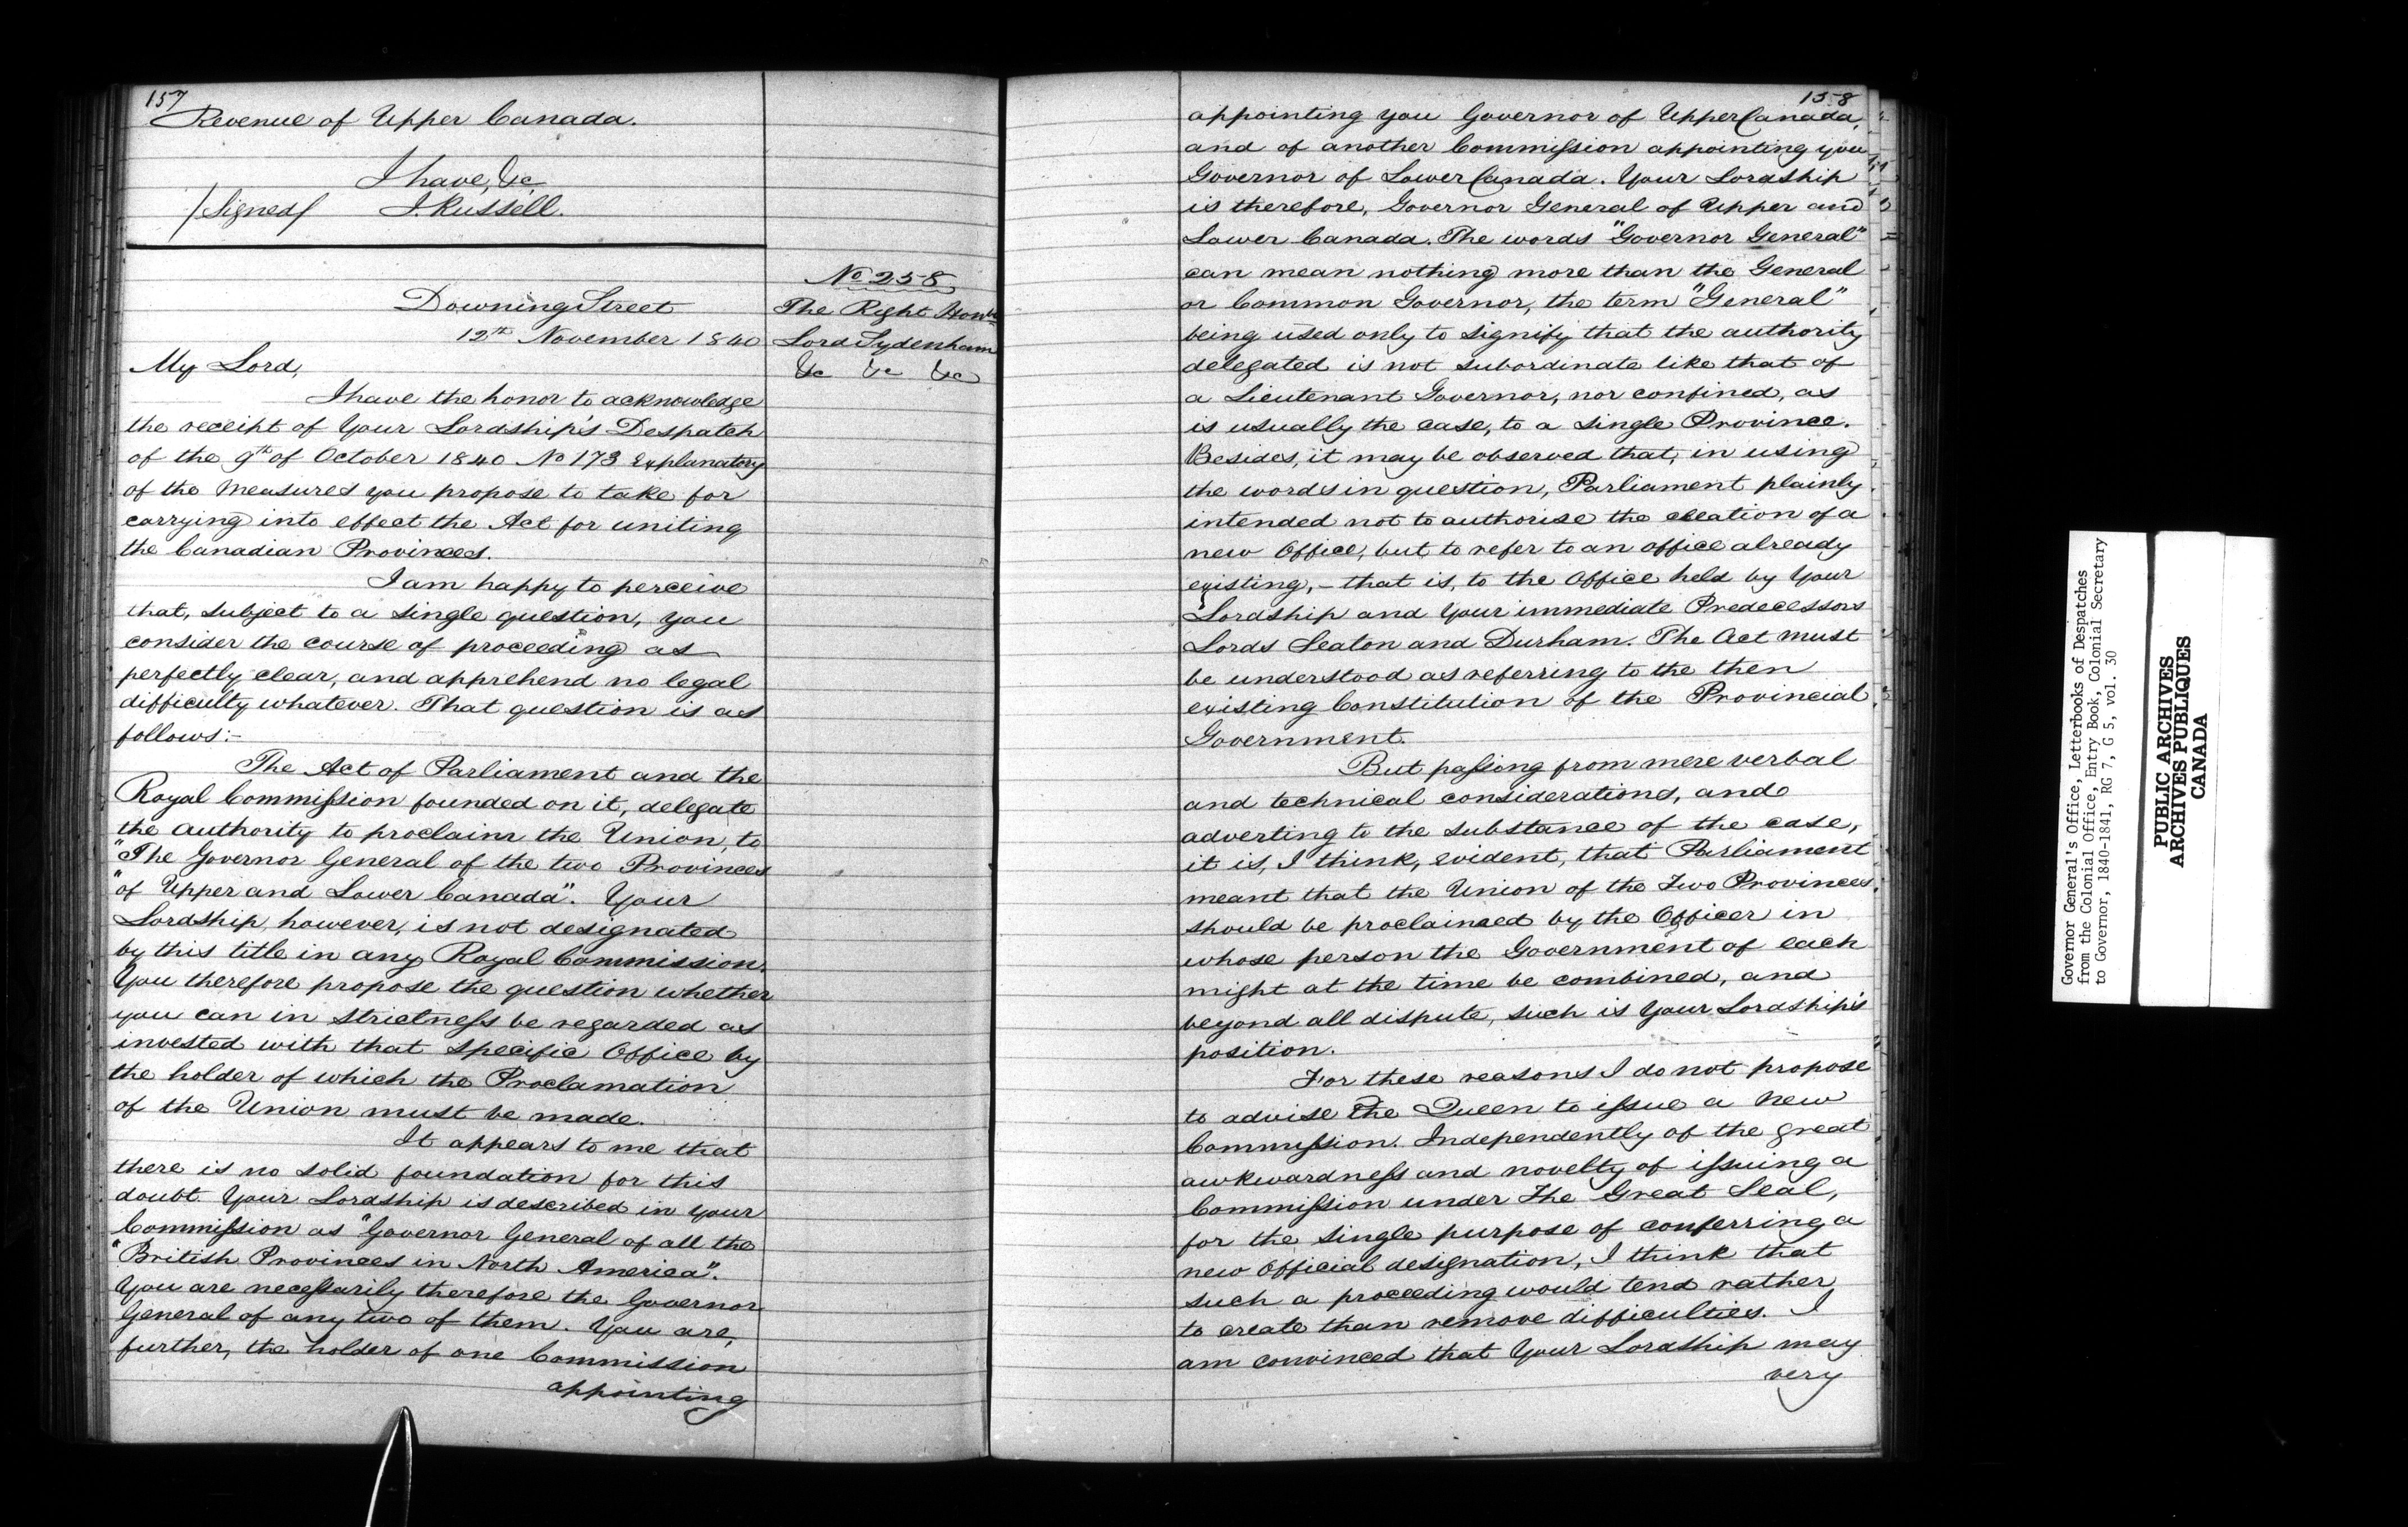 157
Revenue of Upper Canada.
I have, &c,
/Signed/ J. Russell.
No 258
The Right Honble
Lord Sydenham
&c &c &c
Downing Street
12th November 1840
My Lord,
I have the honor to acknowledge
the receipt of Your Lordship's Despatch
of the 9th of October 1840 No 173 explanatory
of the measures you propose to take for
carrying into effect the Act for uniting
the Canadian Provinces.
I am happy to perceive
that, subject to a single question, you
consider the course of proceeding as
perfectly clear, and apprehend no legal
difficulty whatever. That question is as
follows:-
The Act of Parliament and the
Royal Commission founded on it, delegate
the authority to proclaim the Union, to
"The Governor General of the two Provinces
"of Upper and Lower Canada". Your
Lordship, however, is not designated
by this title in any Royal Commission.
You therefore propose the question whether
you can in strictness be regarded as
invested with that specific Office by
the holder of which the Proclamation
of the Union must be made.
It appears to me that
there is no solid foundation for this
doubt. Your Lordship is described in your
Commission as "Governor General of all the
"British Provinces in North America".
You are necessarily therefore the Governor
General of any two of them. You are,
further, the holder of one Commission
appointing
158
appointing you Governor of Upper Canada,
and of another Commission appointing you
Governor of Lower Canada. Your Lordship
is therefore, Governor General of Upper and
Lower Canada. The words "Governor General"
can mean nothing more than the General
or Common Governor, the term "General"
being used only to signify that the authority
delegated is not subordinate like that of
a Lieutenant Governor, nor confined, as
is usually the case, to a single Province.
Besides, it may be observed that, in using
the words in question, Parliament plainly
intended not to authorise the creation of a
new Office, but to refer to an office already
existing,- that is, to the Office held by Your
Lordship and Your immediate Predecessors
Lords Seaton and Durham. The Act must
be understood as referring to the then
existing Constitution of the Provincial
Government.
But passing from mere verbal
and technical considerations, and
adverting to the substance of the case,
it is, I think, evident, that Parliament
meant that the Union of the Two Provinces
should be proclaimed by the Officer in
whose person the Government of each
might at the time be combined, and
beyond all dispute, such is Your Lordship's
position.
For these reasons I do not propose
to advise The Queen to issue a new
Commission. Independently of the great
awkwardness and novelty of issuing a
Commission under The Great Seal,
for the single purpose of conferring a
new Official designation, I think that
such a proceeding would tend rather
to create than remove difficulties. I
am convinced that Your Lordship may
very
Governor General's Office, Letterbooks of Despatches
from the Colonial Office, Entry Book, Colonial Secretary
to Governor, 1840-1841, RG 7, G 5, vol. 30
PUBLIC ARCHIVES
ARCHIVES PUBLIQUES
CANADA